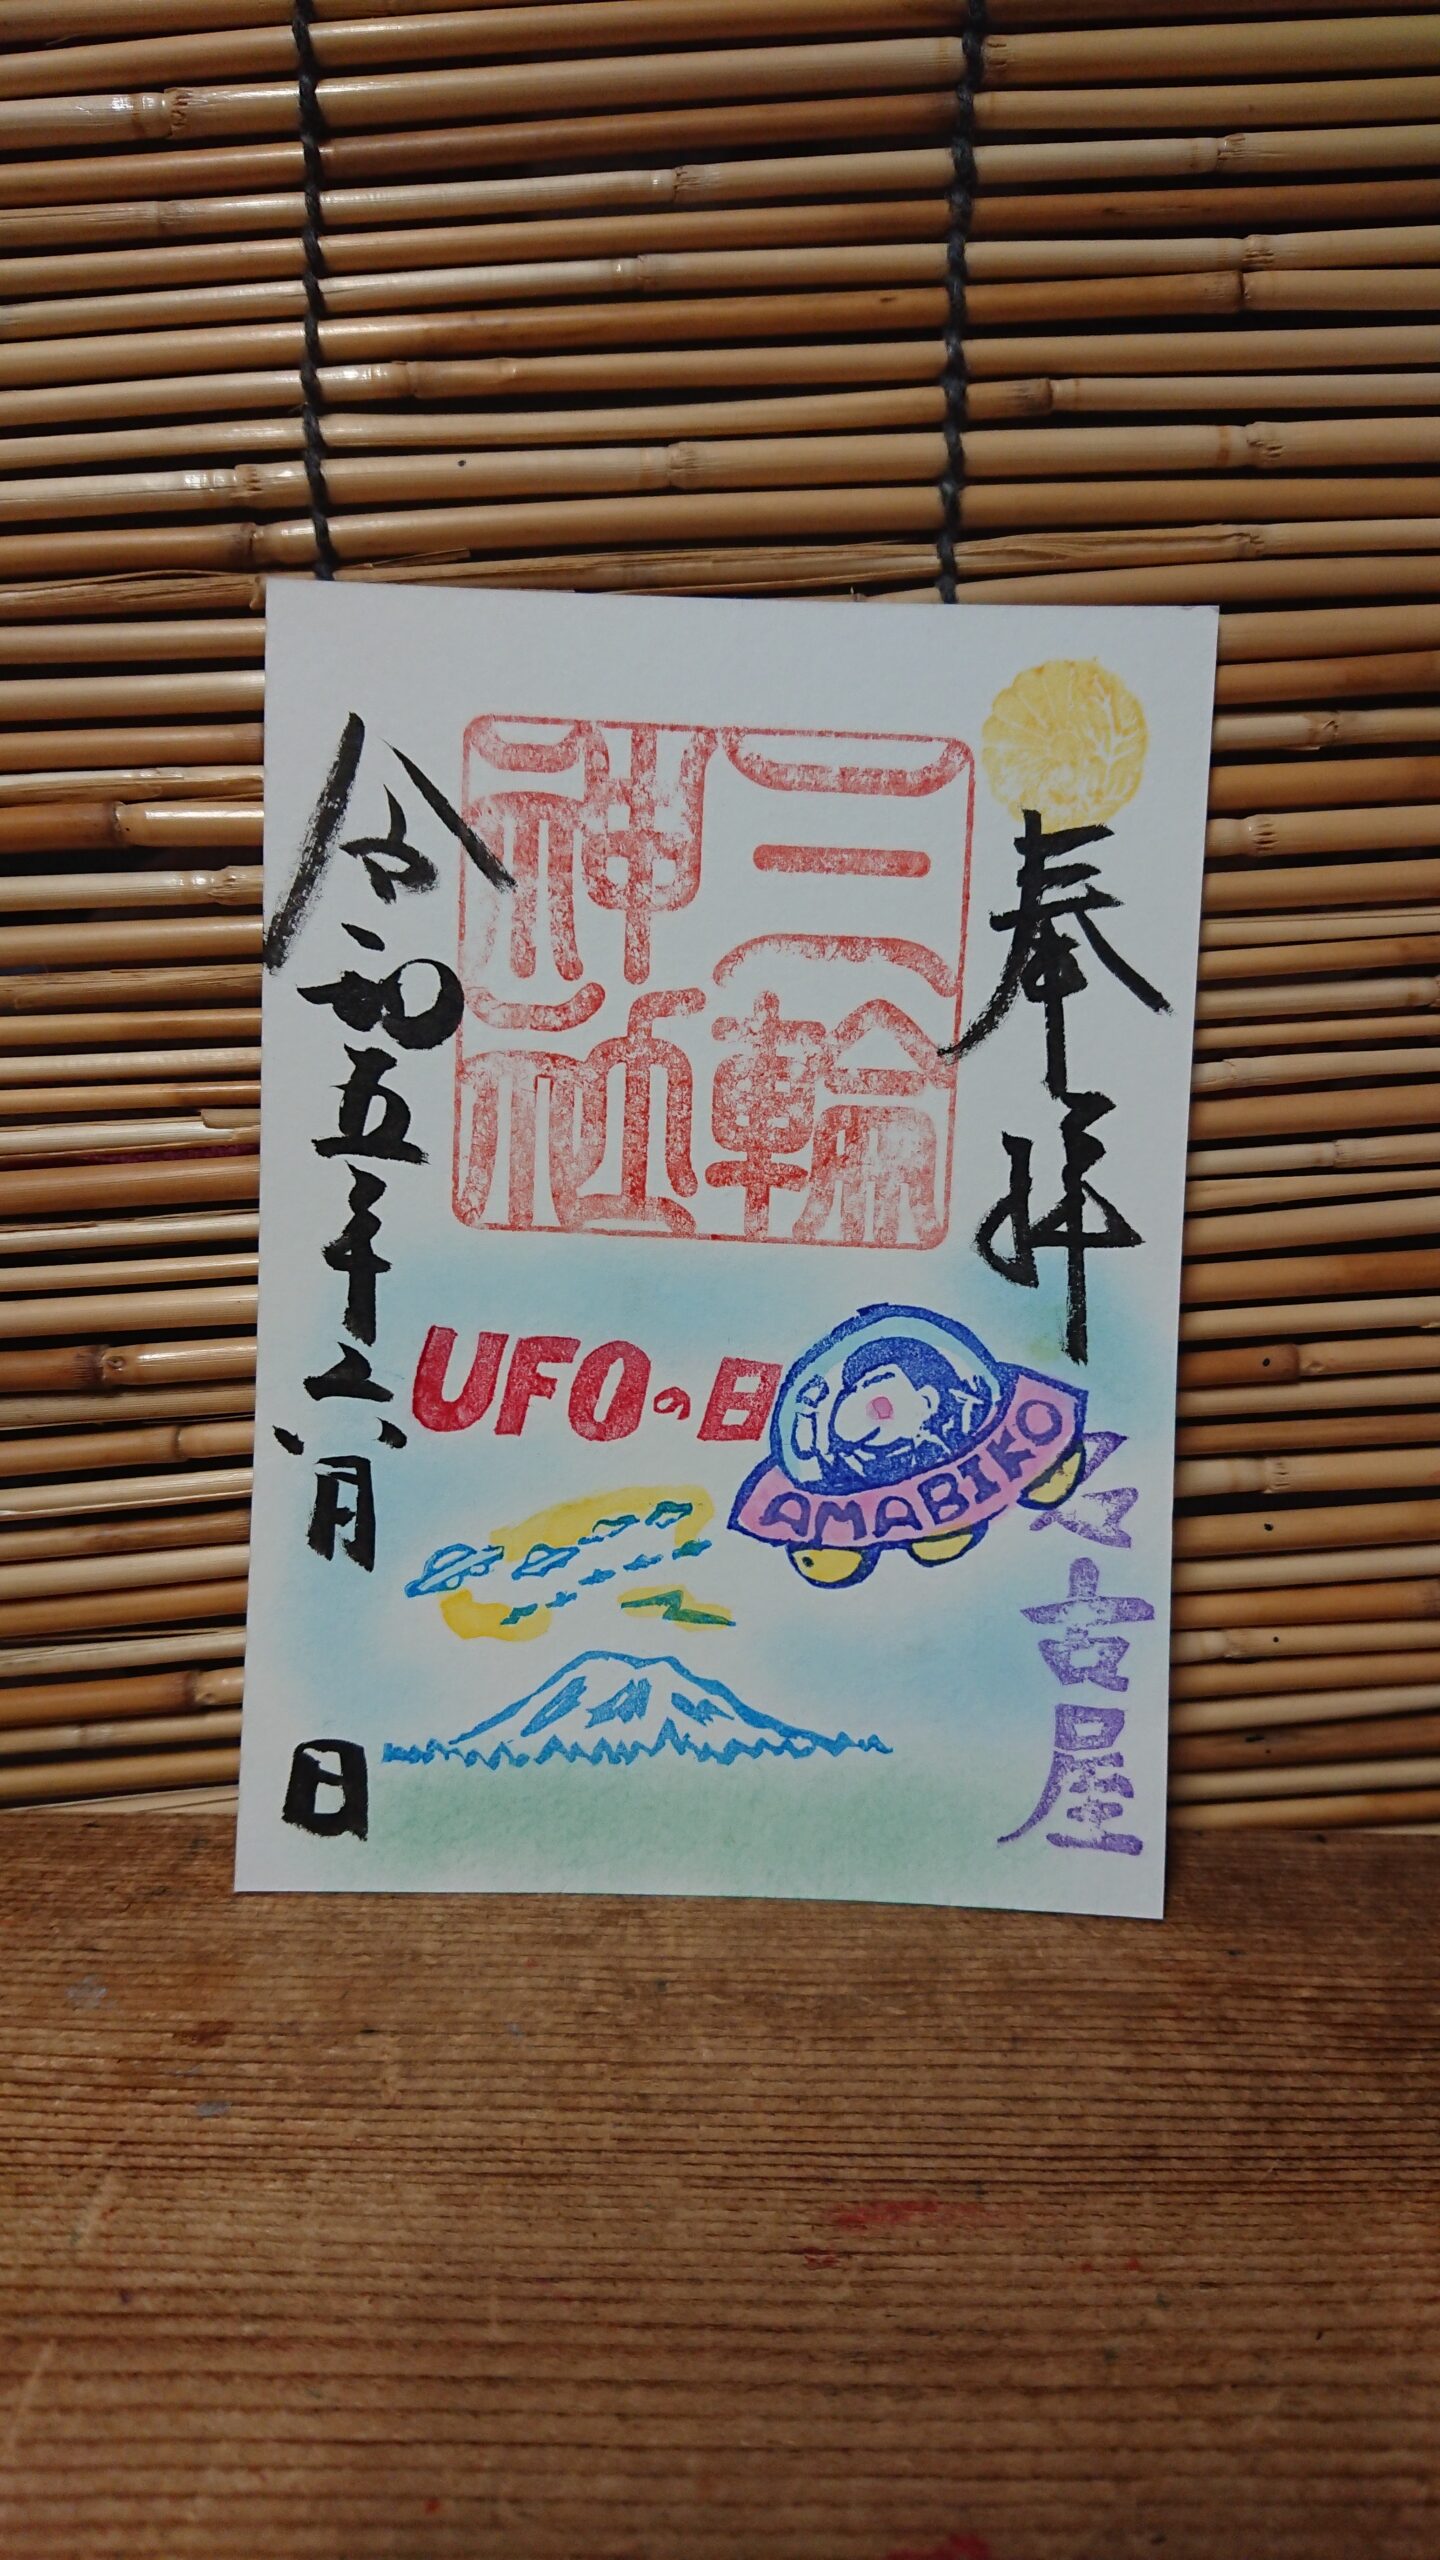 奉拝
名古屋
三輪
神社
UFOの日
AMABIKO
令和五年六月　日